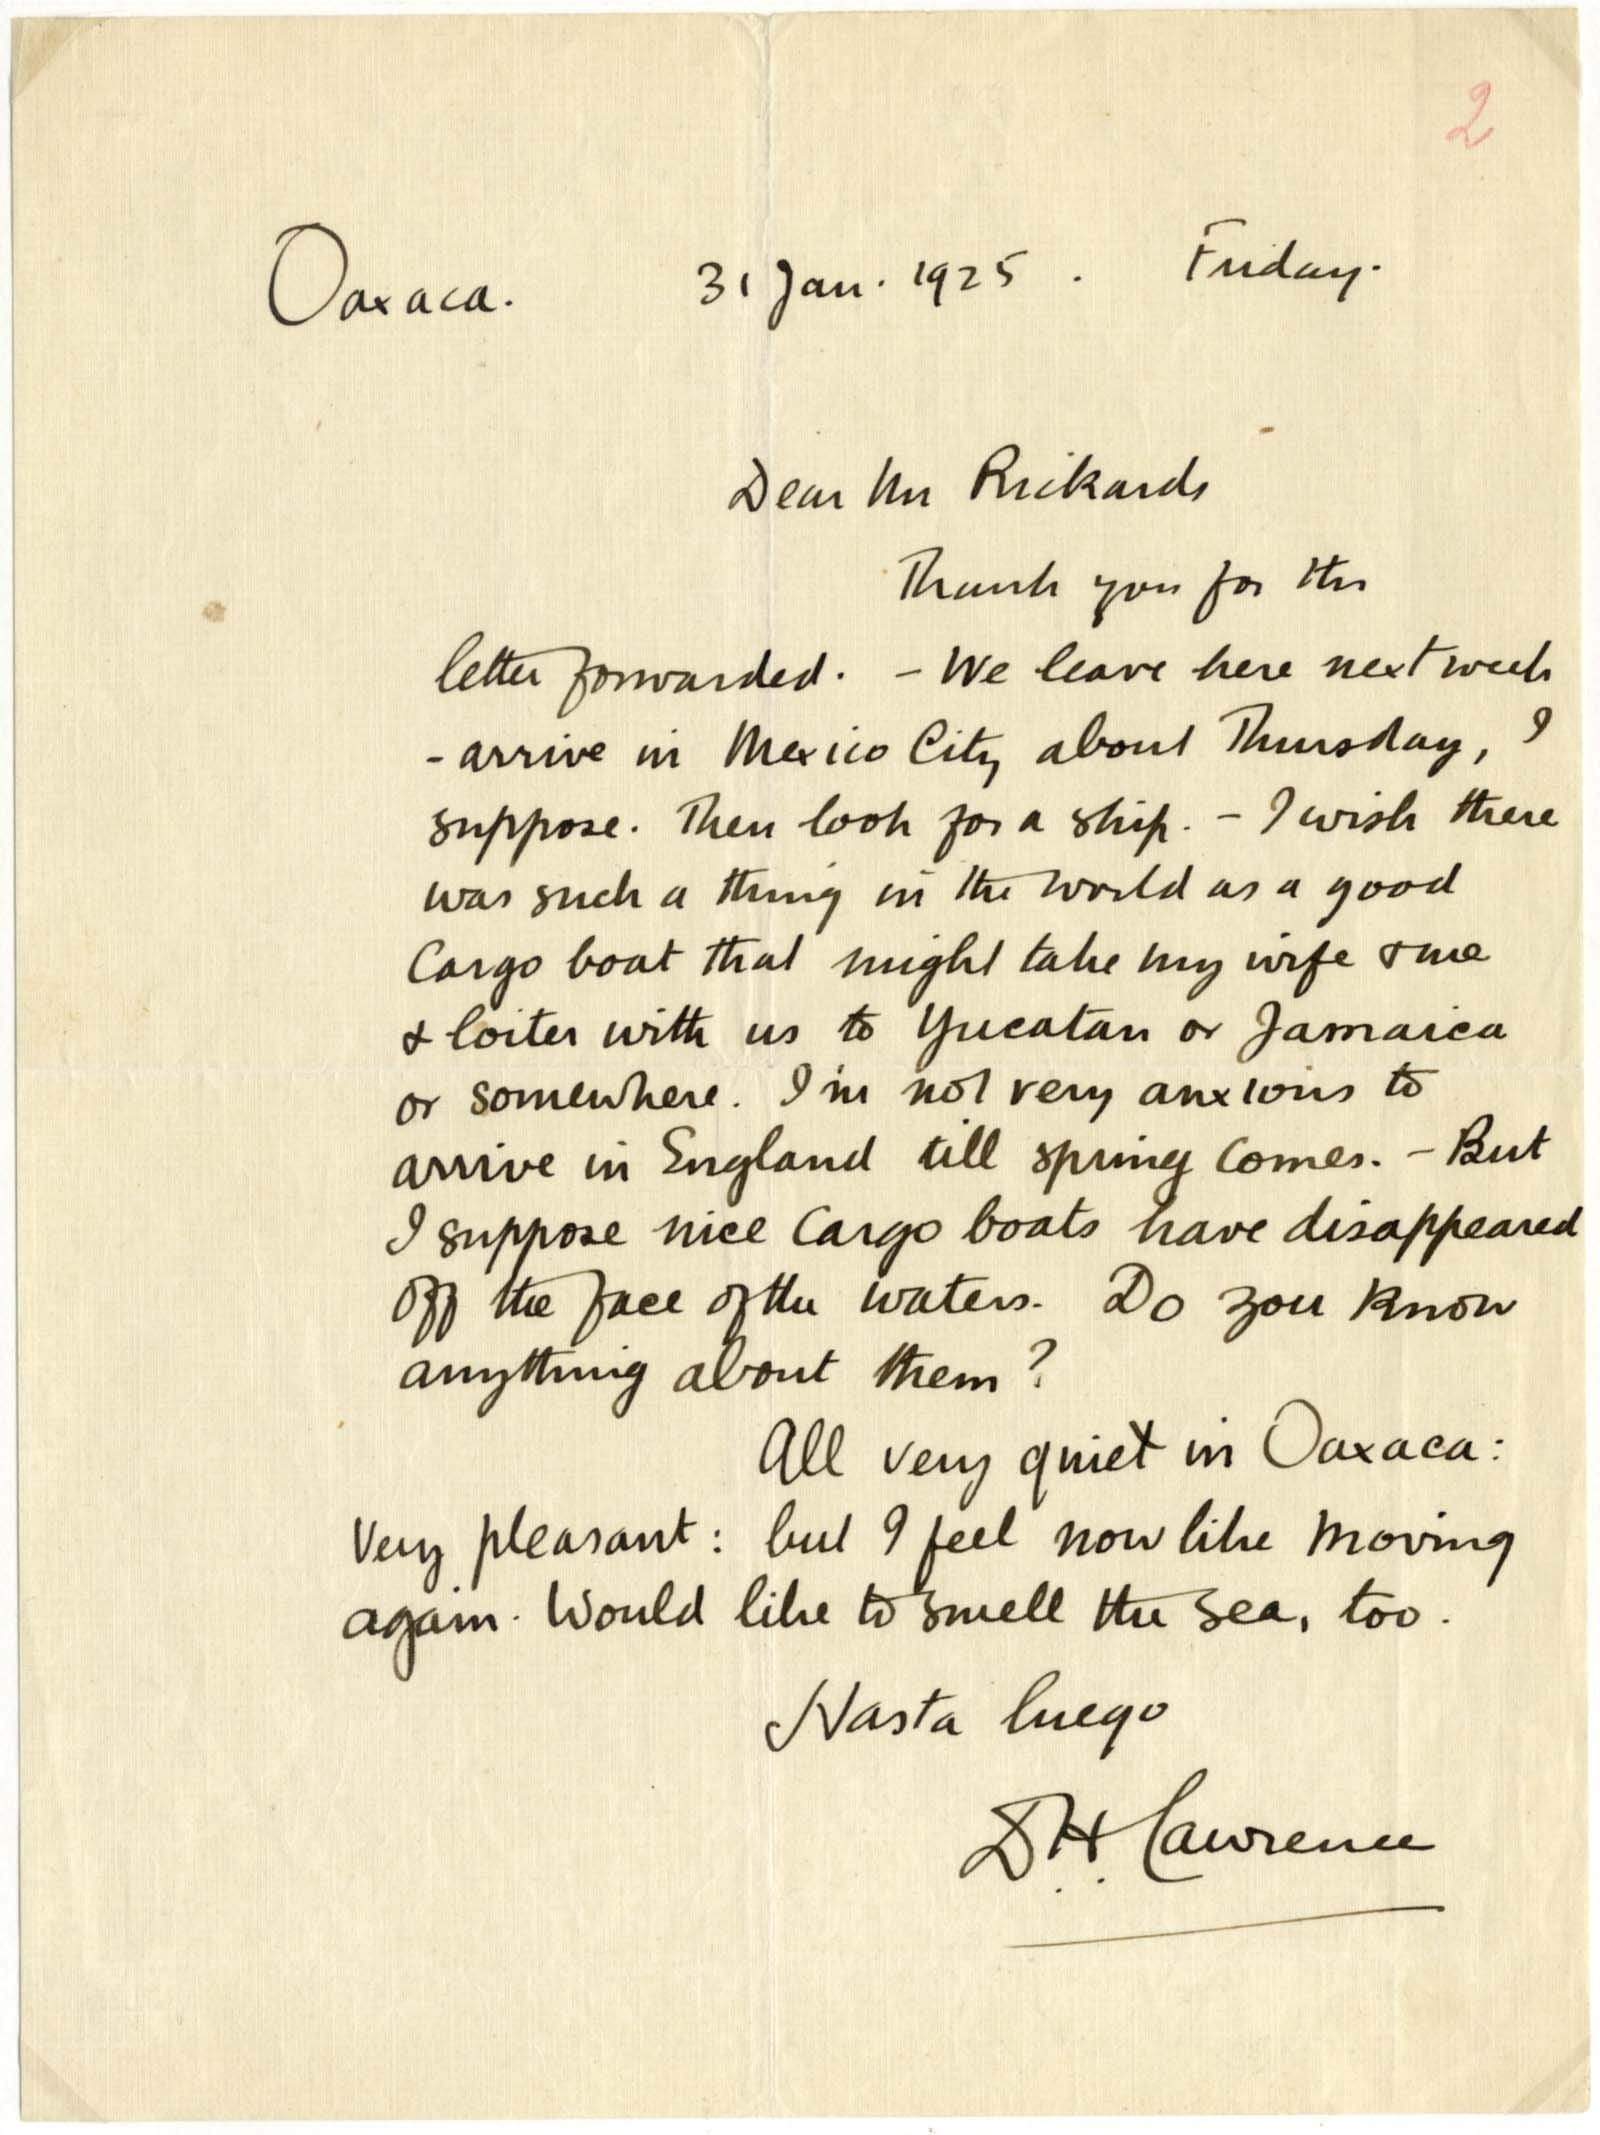 2
Oaxaca. 31 Jan. 1925. Friday.
Dear Mr Rickards
Thank you for the
letter forwarded. – We leave here next week
- arrive in Mexico City about Thursday, I
suppose. Then look for a ship. – I wish there
was such a thing in the world as a good
Cargo boat that might take my wife & me
& loiter with us to Yucatan or Jamaica
or somewhere. I'm not very anxious to
arrive in England till spring comes. – But
I suppose nice Cargo boats have disappeared
off the face of the waters. Do you know
anything about them?
All very quiet in Oaxaca:
Very pleasant: but I feel now like moving
again. Would like to smell the sea, too.
Hasta luego
D.H. Lawrence